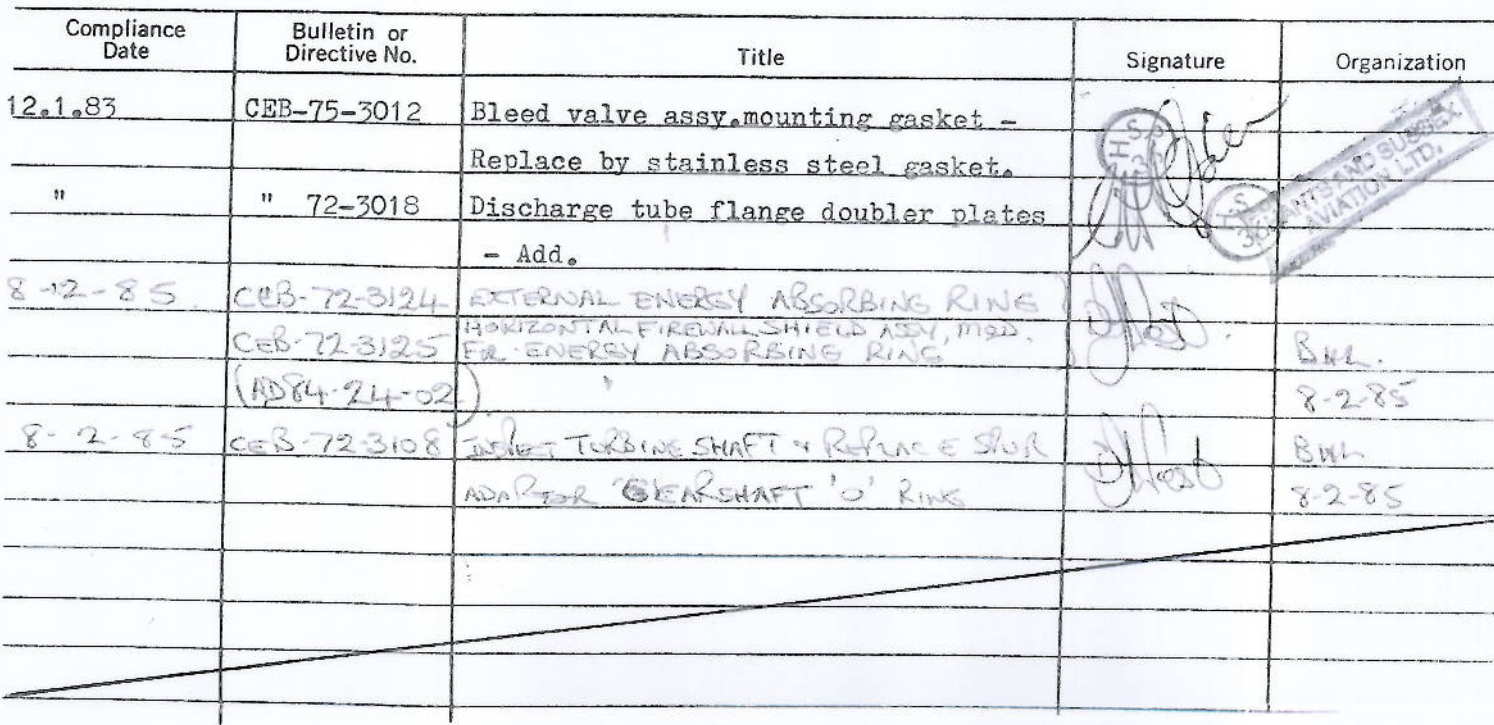 Compliance Date
Bulletin or Directive No.
Title
Signature
Organization
12.1.83 CEB-75-3012 Bleed valve assy.mounting gasket -
Replace by stainless steel gasket.
" " 72-3018 Discharge tube flange doubler plates
- Add.
HANTS AND SUSSEX
AVIATION LTD.
8-12-85. CEB-72-3124 EXTERNAL ENERGY ABSORBING RING
CEB-72-3125 HORIZONTAL FIREWALL SHIELD ASSY, MOD.
FOR ENERGY ABSORBING RING
BHL.
(AD84-24-02) 8-2-85
8-2-85 CEB-72-3108 INSPECT TURBINE SHAFT & REPLACE SPUR BHL
ADAPTOR GEARSHAFT 'O' RING 8-2-85